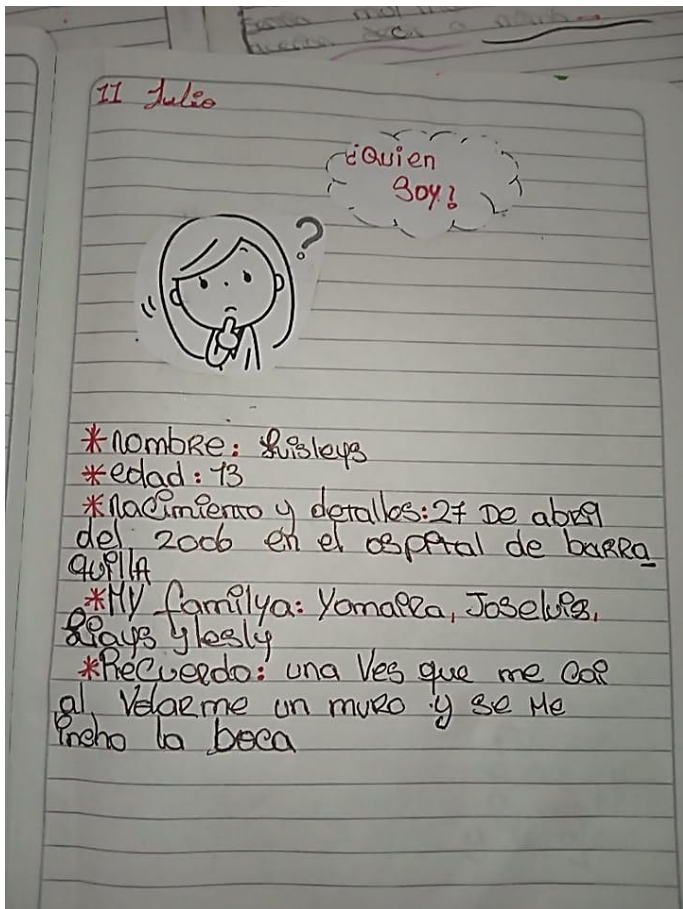 11 Julio
¿Quien
soy?
?
*nombre: Luisleys
*edad: 13
*nacimiento y detalles: 27 De abril
del 2006 en el ospital de baRRa
quillA
*MY familya: Yomaira, Joseluis,
y lesly
*RecueRdo: una Ves que me cai
al VolaRme un muRo y se Me
incho la boca